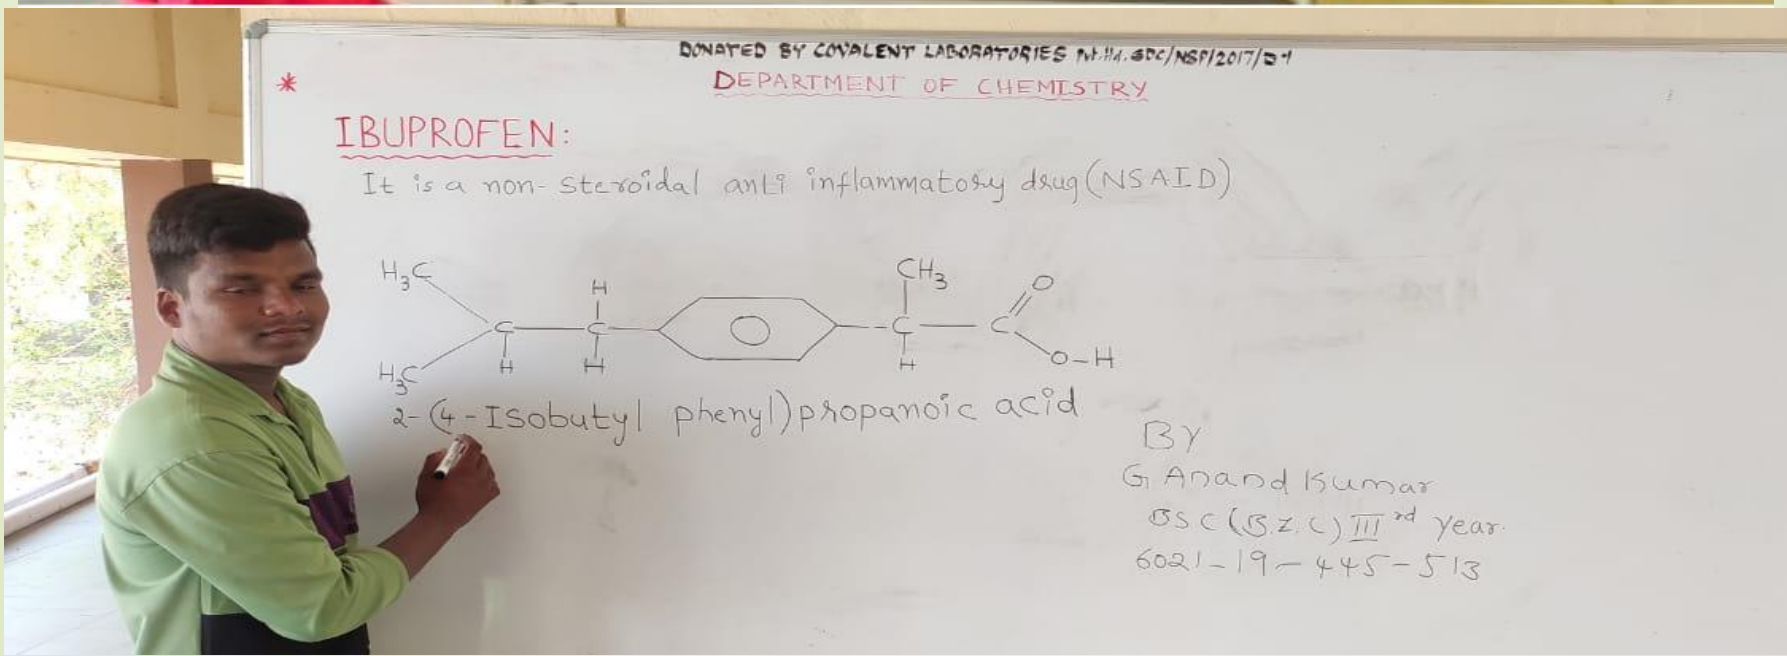 DONATED BY COVALENT LABORATORIES Pvt.ltd. GDC/NSP/2017/
DEPARTMENT OF CHEMISTRY
*
IBUPROFEN:
It is a non-steroidal anti inflammatory drug (NSAID)
H₃C
CH₃
O
H
C C C C
H₃C
H H H
O-H
2-(4-Isobutyl phenyl)propanoic acid
BY
G Anand Kumar
BSC (B.Z.C) III rd Year.
6021-19-445-513